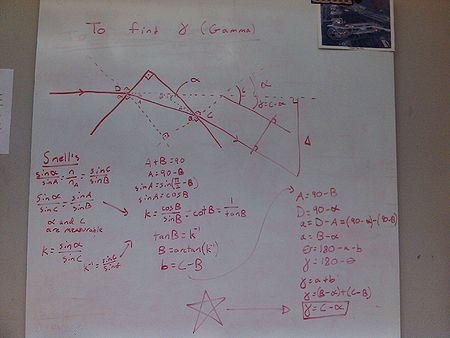 To find γ (Gamma)
D
α
A
B
C
α
C
α
γ=C-α
Δ
Snell's
sinα/sinA = n/n_A = sinC/sinB
sinα/sinC = sinA/sinB
α and C
are measurable
K = sinα/sinC
K⁻¹ = sinC/sinα
A+B=90
A=90-B
sinA=sin(π/2-B)
sinA=cosB
K = cosB/sinB = cotB = 1/tanB
tanB=K⁻¹
B=arctan(K⁻¹)
b=C-B
A=90-B
D=90-α
a=D-A=(90-α)-(90-B)
a=B-α
θ=180-a-b
γ=180-θ
γ=a+b
γ=(B-α)+(C-B)
γ=C-α